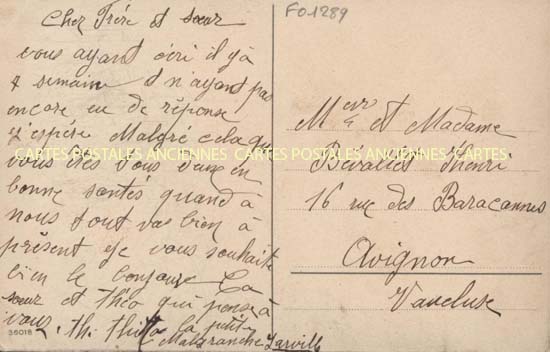 Cher Frère et sœur
vous ayant écri il y à
4 semaine et n'ayant pas
encore eu de réponse
j'espére Malgré cela que
vous êtes tous deux en
bonne santes quand à
nous tout vas bien à
présent je vous souhaite
bien le bonjour La
sœur et théo qui pense à
vous. th.
la petite
Malgranche
36018
FO.1289
Meur et Madame
Henri
16 rue des Baracannes
Avignon
Vaucluse
CARTES POSTALES ANCIENNES CARTES POSTALES ANCIENNES CARTES